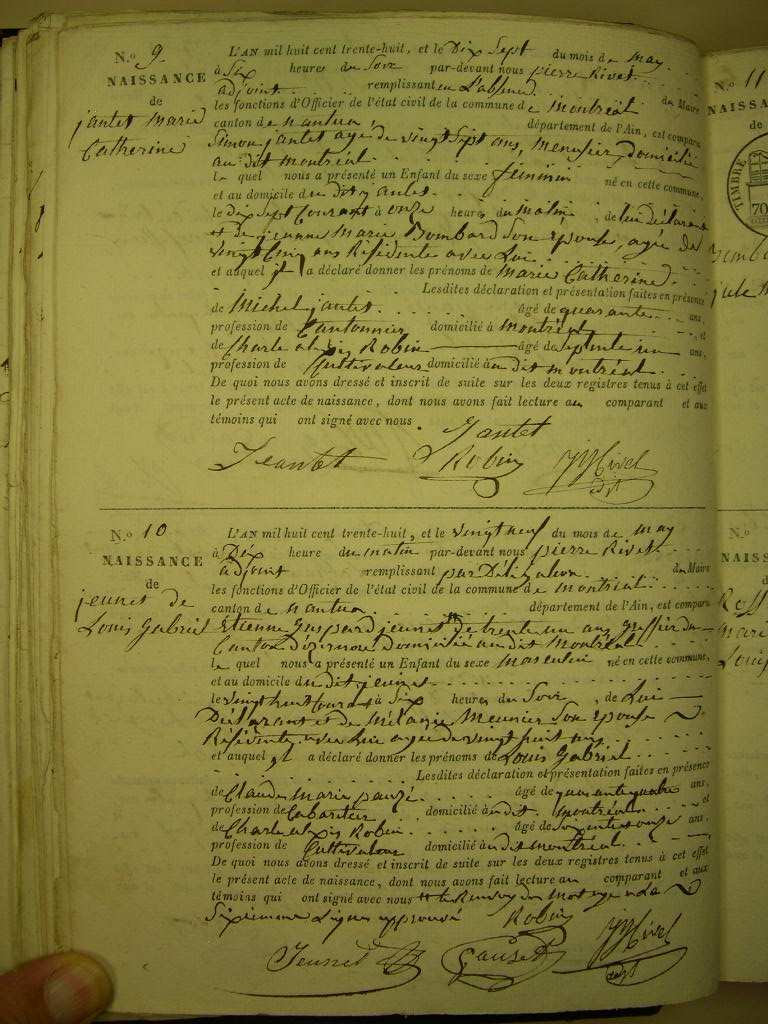 N.º 9
NAISSANCE
de
jantet Marie
Catherine
L'AN mil huit cent trente-huit, et le Dix Sept du mois de may
à Six heures du Soir par-devant nous pierre Rivet
adjoint remplissant en L'absence du Maire
les fonctions d'Officier de l'état civil de la commune de Montréal
canton de nantua, département de l'Ain, est comparu
Simon jantet age de vingt Sept ans, Menusier, domicilié
au dit montréal
le quel nous a présenté un Enfant du sexe féminin né en cette commune,
et au domicile du dit jantet
le dix sept Courant à onze heures du matin, de lui déclarant
et de jeanne Marie Bombard Son épouse, agée de
vingt Cinq ans Résidente avec Lui
et auquel il a déclaré donner les prénoms de Marie Catherine
Lesdites déclaration et présentation faites en présence
de Michel jantet âgé de quarante ans,
profession de Cantonnier domicilié à Montréal et
de Charle alexis Robin âgé de ans,
profession de Cultivateur domicilié au dit montréal
De quoi nous avons dressé et inscrit de suite sur les deux registres tenus à cet effet
le présent acte de naissance, dont nous avons fait lecture au comparant et aux
témoins qui ont signé avec nous
Jantet
Jeantet Robin Rivet
adjt
N.º 10
NAISSANCE
de
jeunet
Louis Gabriel
L'AN mil huit cent trente-huit, et le vingt neuf du mois de may
à Dix heure du matin par-devant nous pierre Rivet
adjoint remplissant par Délégation du Maire
les fonctions d'Officier de l'état civil de la commune de montréal
canton de nantua département de l'Ain, est comparu
Etienne Gaspard jeunet de trente un ans greffier du
Canton d'izernore Domicilié au dit Montréal
le quel nous a présenté un Enfant du sexe masculin né en cette commune,
et au domicile du dit jeunet
le vingt huit Courant à Six heures du Soir, de Lui
Déclarant et de Mélanie Meunier Son épouse
Résidente avec lui agée de vingt huit ans
et auquel il a déclaré donner les prénoms de Louis Gabriel
Lesdites déclaration et présentation faites en présence
de Claude Marie âgé de quarante quatre ans,
profession de Cabaretier domicilié au dit montréal et
de Charle alexis Robin âgé de ans,
profession de Cultivateur domicilié au dit Montréal
De quoi nous avons dressé et inscrit de suite sur les deux registres tenus à cet effet
le présent acte de naissance, dont nous avons fait lecture au comparant et aux
témoins qui ont signé avec nous le Renvoy du mot agé a La
Sixieme Ligne approuvé Robin Rivet
Jeunet adjt
N.º 11
NAISSA
de
TIMBRE
70
N.º
NAISS
de